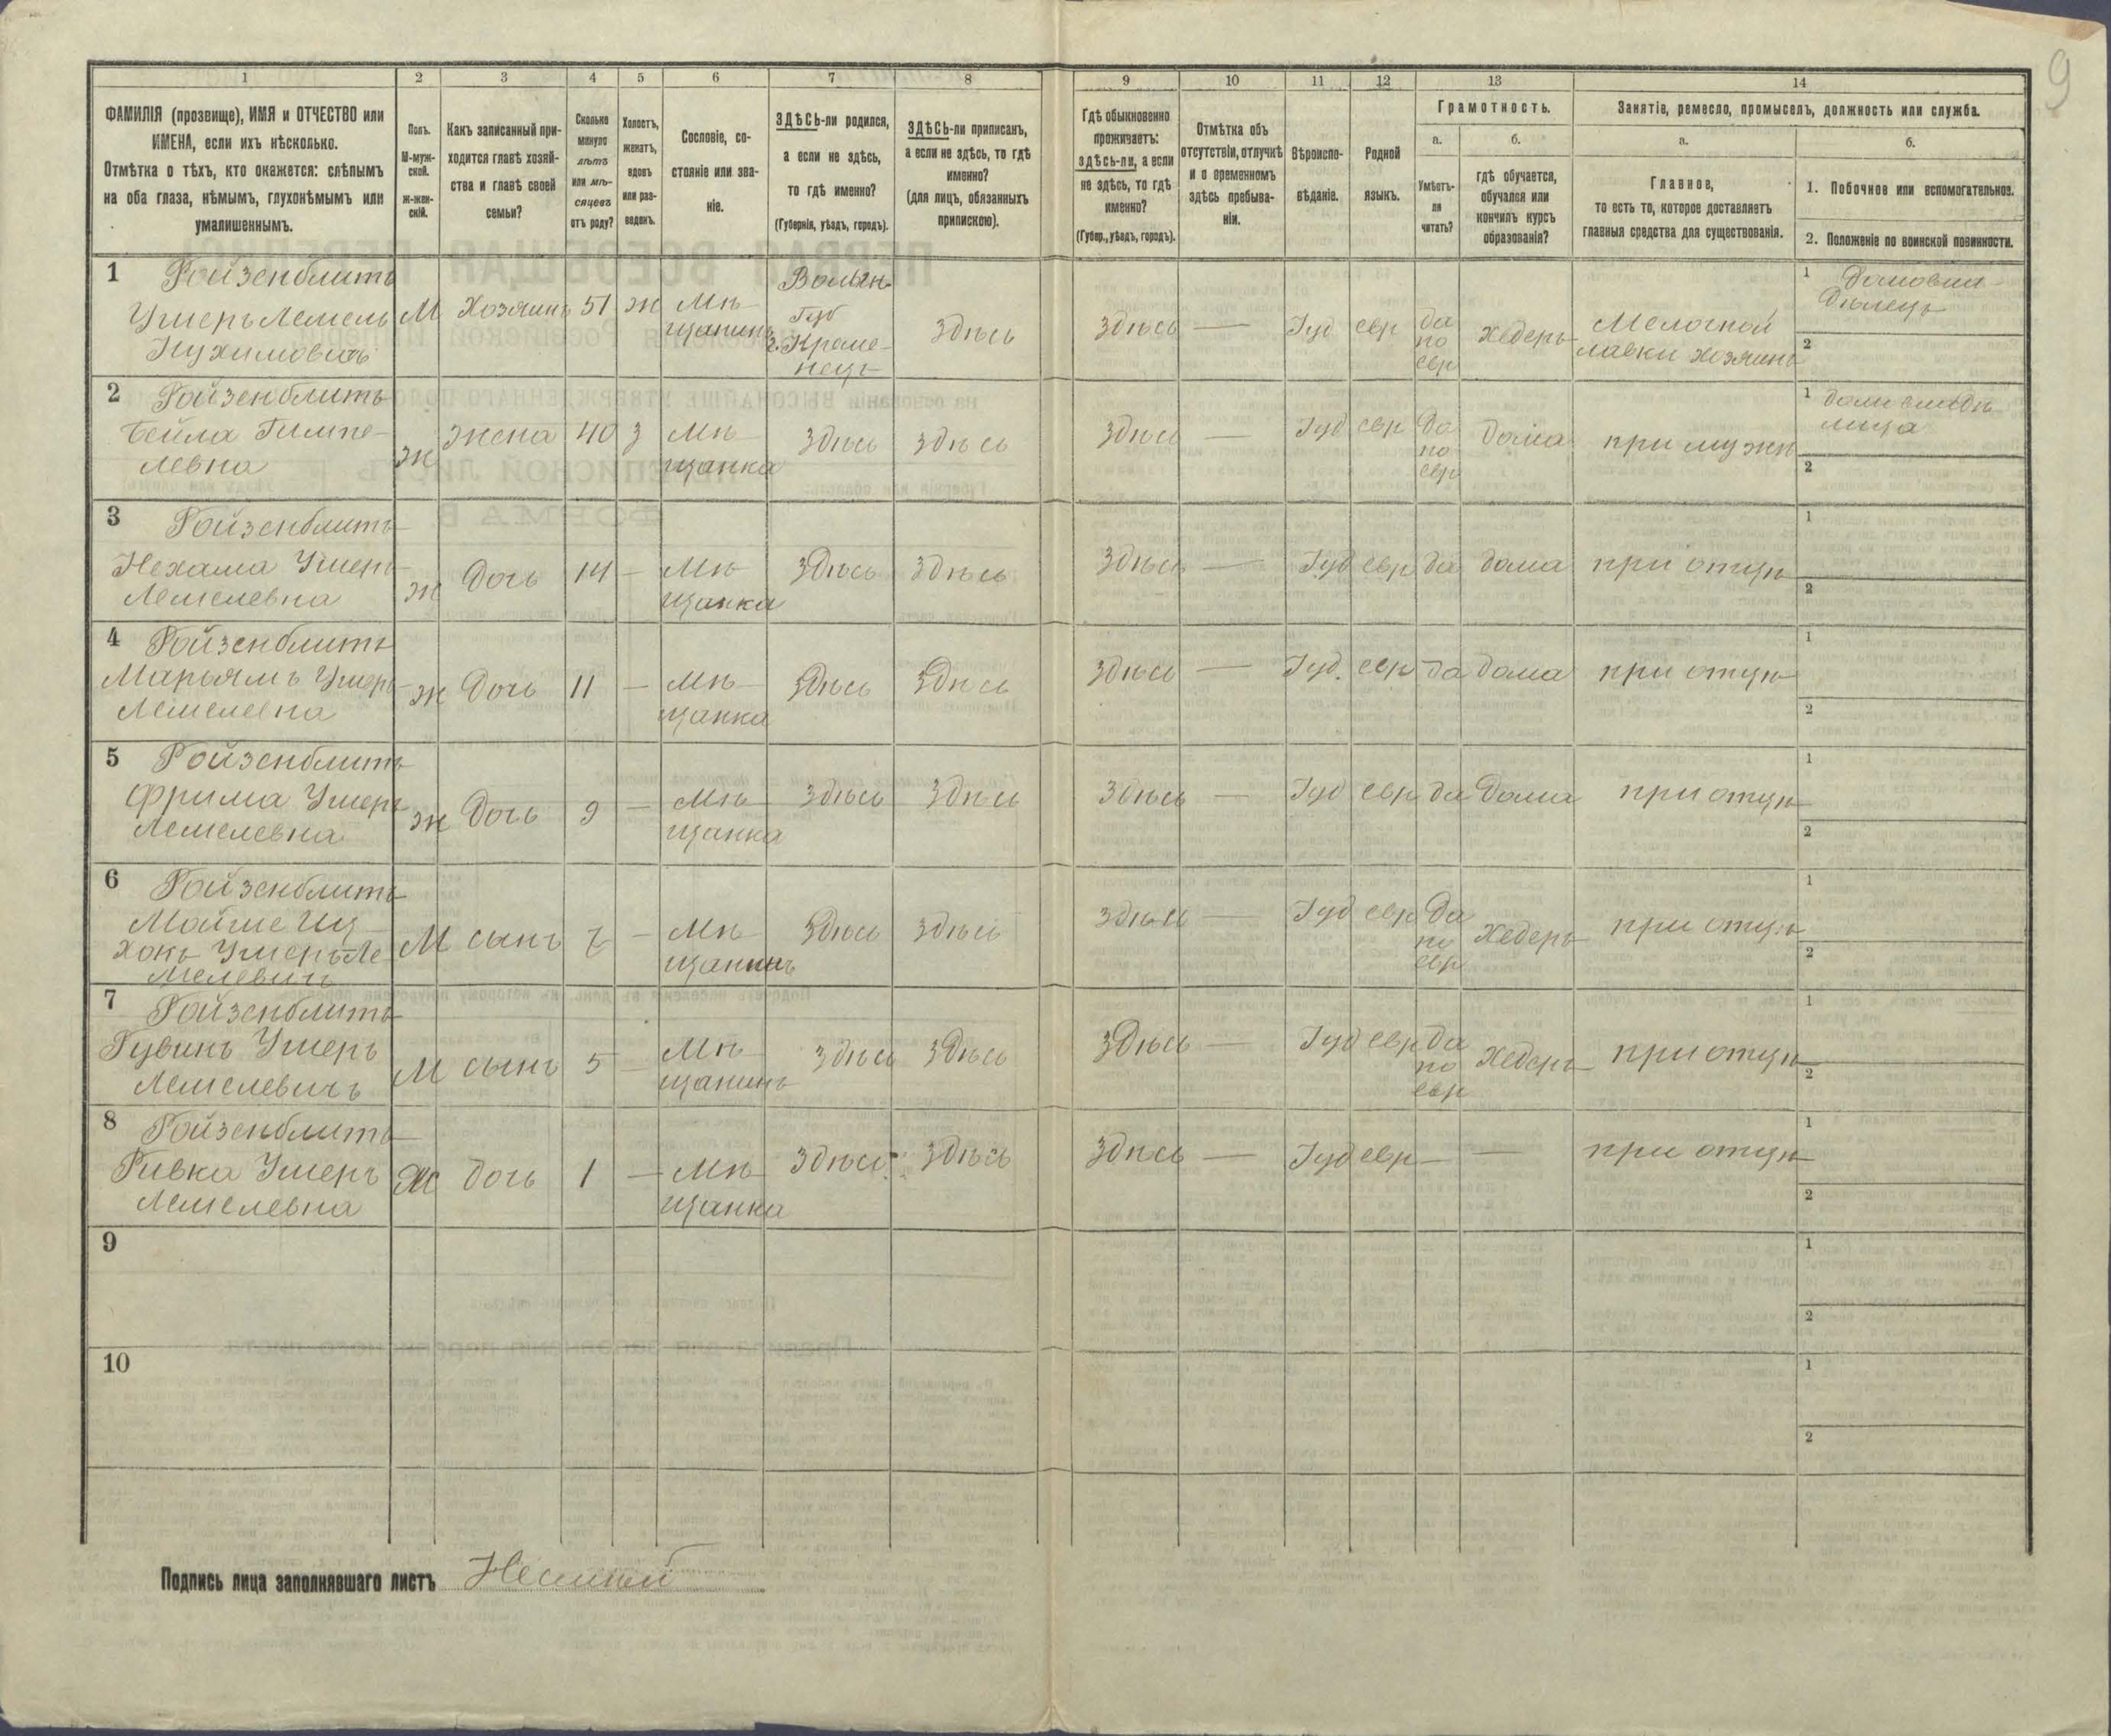 9
1 2 3 4 5 6 7 8 9 10 11 12 13 14
ФАМИЛІЯ (прозвище), ИМЯ и ОТЧЕСТВО или
ИМЕНА, если ихъ нѣсколько.
Отмѣтка о тѣхъ, кто окажется: слѣпымъ
на оба глаза, нѣмымъ, глухонѣмымъ или
умалишеннымъ.
Полъ.
М-муж-
ской.
Ж-жен-
скій.
Какъ записанный при-
ходится главѣ хозяй-
ства и главѣ своей
семьи?
Сколько
минуло
лѣтъ
или мѣ-
сяцевъ
отъ роду?
Холостъ,
женатъ,
вдовъ
или раз-
веденъ.
Сословіе, со-
стояніе или зва-
ніе.
ЗДѢСЬ-ли родился,
а если не здѣсь,
то гдѣ именно?
(Губернія, уѣздъ, городъ).
ЗДѢСЬ-ли приписанъ,
а если не здѣсь, то гдѣ
именно?
(для лицъ, обязанныхъ
припискою).
Гдѣ обыкновенно
проживаетъ:
здѣсь-ли, а если
не здѣсь, то гдѣ
именно?
(Губер., уѣздъ, городъ).
Отмѣтка объ
отсутствіи, отлучкѣ
и о временномъ
здѣсь пребыва-
ніи.
Вѣроиспо-
вѣданіе.
Родной
языкъ.
Грамотность.
а.
Умѣетъ-
ли
читать?
б.
гдѣ обучается,
обучался или
кончилъ курсъ
образованія?
Занятіе, ремесло, промыселъ, должность или служба.
а.
Главное,
то есть то, которое доставляетъ
главныя средства для существованія.
б.
1. Побочное или вспомогательное.
2. Положеніе по воинской повинности.
1 Ройзенблитъ
Ушеръ Лемель
Нухимовичъ
М Хозяинъ 51 ж Мѣ-
щанинъ
Волын.
Губ
г. Креме-
нецъ
Здѣсь Здѣсь — Іуд евр да
по
евр
Хедеръ Мелочной
лавки хозяинъ
1 Домовла-
дѣлецъ
2
2 Ройзенблитъ
Бейла Гимпе-
левна
Ж жена 40 з Мѣ-
щанка
Здѣсь Здѣсь Здѣсь — Іуд евр Да
по
евр
дома при мужѣ
1 домовладѣ-
лица
2
3 Ройзенблитъ
Нехама Ушеръ-
Лемелевна
Ж Дочь 14 — Мѣ-
щанка
Здѣсь Здѣсь Здѣсь — Іуд евр да дома при отцѣ
1
2
4 Ройзенблитъ
Марьямъ Ушеръ-
Лемелевна
Ж Дочь 11 — Мѣ-
щанка
Здѣсь Здѣсь Здѣсь — Іуд. евр да дома при отцѣ
1
2
5 Ройзенблитъ
Фрима Ушеръ
Лемелевна
Ж Дочь 9 — Мѣ-
щанка
Здѣсь Здѣсь Здѣсь — Іуд евр да Дома при отцѣ
1
2
6 Ройзенблитъ
Мойше Иц-
хокъ Ушеръ-Ле-
мелевичъ
М сынъ 7 — Мѣ-
щанинъ
Здѣсь Здѣсь Здѣсь — Іуд евр Да
по
евр
Хедеръ при отцѣ
1
2
7 Ройзенблитъ
Рувинъ Ушеръ
Лемелевичъ
М сынъ 5 — Мѣ-
щанинъ
Здѣсь Здѣсь Здѣсь — Іуд евр да
по
евр
Хедеръ при отцѣ
1
2
8 Ройзенблитъ
Ривка Ушеръ
Лемелевна
Ж дочь 1 — Мѣ-
щанка
Здѣсь Здѣсь Здѣсь — Іуд евр — — при отцѣ
1
2
9
1
2
10
1
2
Подпись лица заполнявшаго листъ